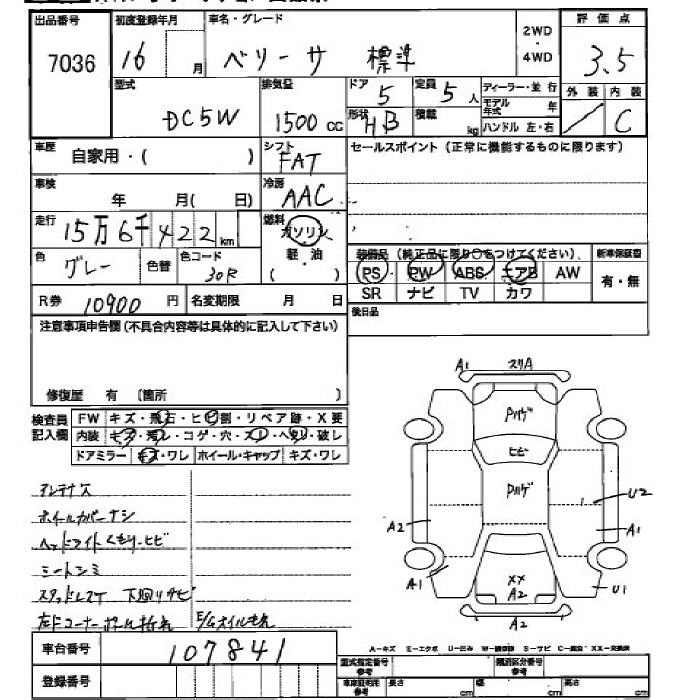 出品番号 初度登録年月 車名・グレード 2WD・4WD 評価点
7036 16 月 ベリーサ 標準 3.5
型式 排気量 ドア 定員 ディーラー・並行 外装 内装
DC5W 1500 cc 5 5人 モデル年式 年 C
形状 HB 積載 kg ハンドル 左・右
車歴 自家用・( ) シフト FAT セールスポイント(正常に機能するものに限ります)
車検 年 月( 日) 冷房 AAC
走行 15万6千422km 燃料 ガソリン 軽・油 ( )
装備品(純正品に限り○をつけてください) 新車保証書
色 グレー 色替 色コード 30R
PS PW ABS エアB AW 有・無
SR ナビ TV カワ
R券 10900 円 名変期限 月 日 後日品
注意事項申告欄(不具合内容等は具体的に記入して下さい)
修復歴 有 (箇所 )
検査員記入欄 FW キズ・飛石・ヒビ割・リペア跡・X要
内装 キズ・汚レ・コゲ・穴・スレ・ヘタリ・破レ
ドアミラー キズ・ワレ ホイール・キャップ キズ・ワレ
アンテナ欠
ホイールカバーナシ
ヘッドライトくもり・ヒビ
シートシミ
スタッドレスTY 下回りサビ
左ドコーナーポール折れ E/Gオイルモレ
A1 スリA
Pハゲ
ヒビ
Pハゲ
U2
A2 A1
A1 XX A2 U1
A2
A-キズ E-エクボ U-凹み W-補修跡 S-サビ C-腐食 XX-交換済
車台番号 107841
型式指定番号 参考 類別区分番号 参考
登録番号 車庫証明用 参考 長さ cm 幅 cm 高さ cm